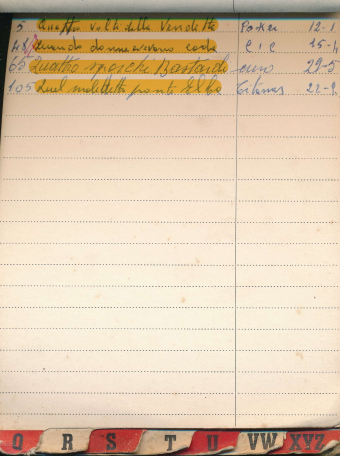 5 Quattro volti della Vendetta Poker 12-1
48 Quando donne avevano coda C I C 15-4
65 Quattro sporchi Bastardi euro 29-5
105 Quel maledetto ponte Elba Titanus 22-9
Q R S T U VW XYZ